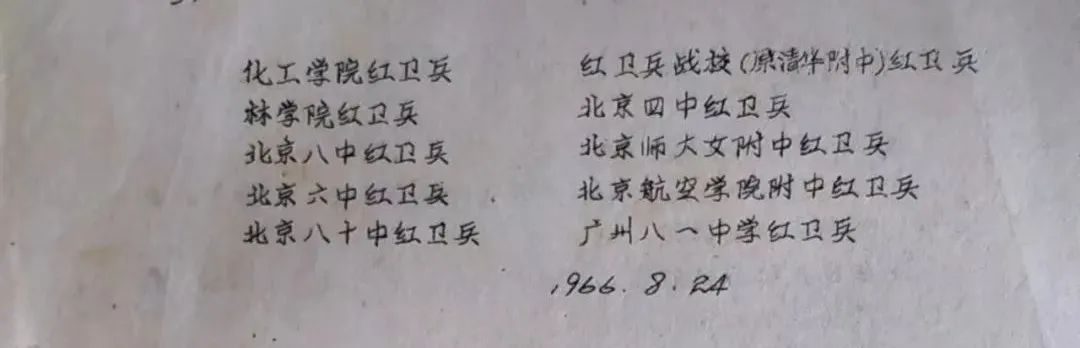 化工学院红卫兵
林学院红卫兵
北京八中红卫兵
北京六中红卫兵
北京八十中红卫兵
红卫兵战校(原清华附中)红卫兵
北京四中红卫兵
北京师大女附中红卫兵
北京航空学院附中红卫兵
广州八一中学红卫兵
1966.8.24